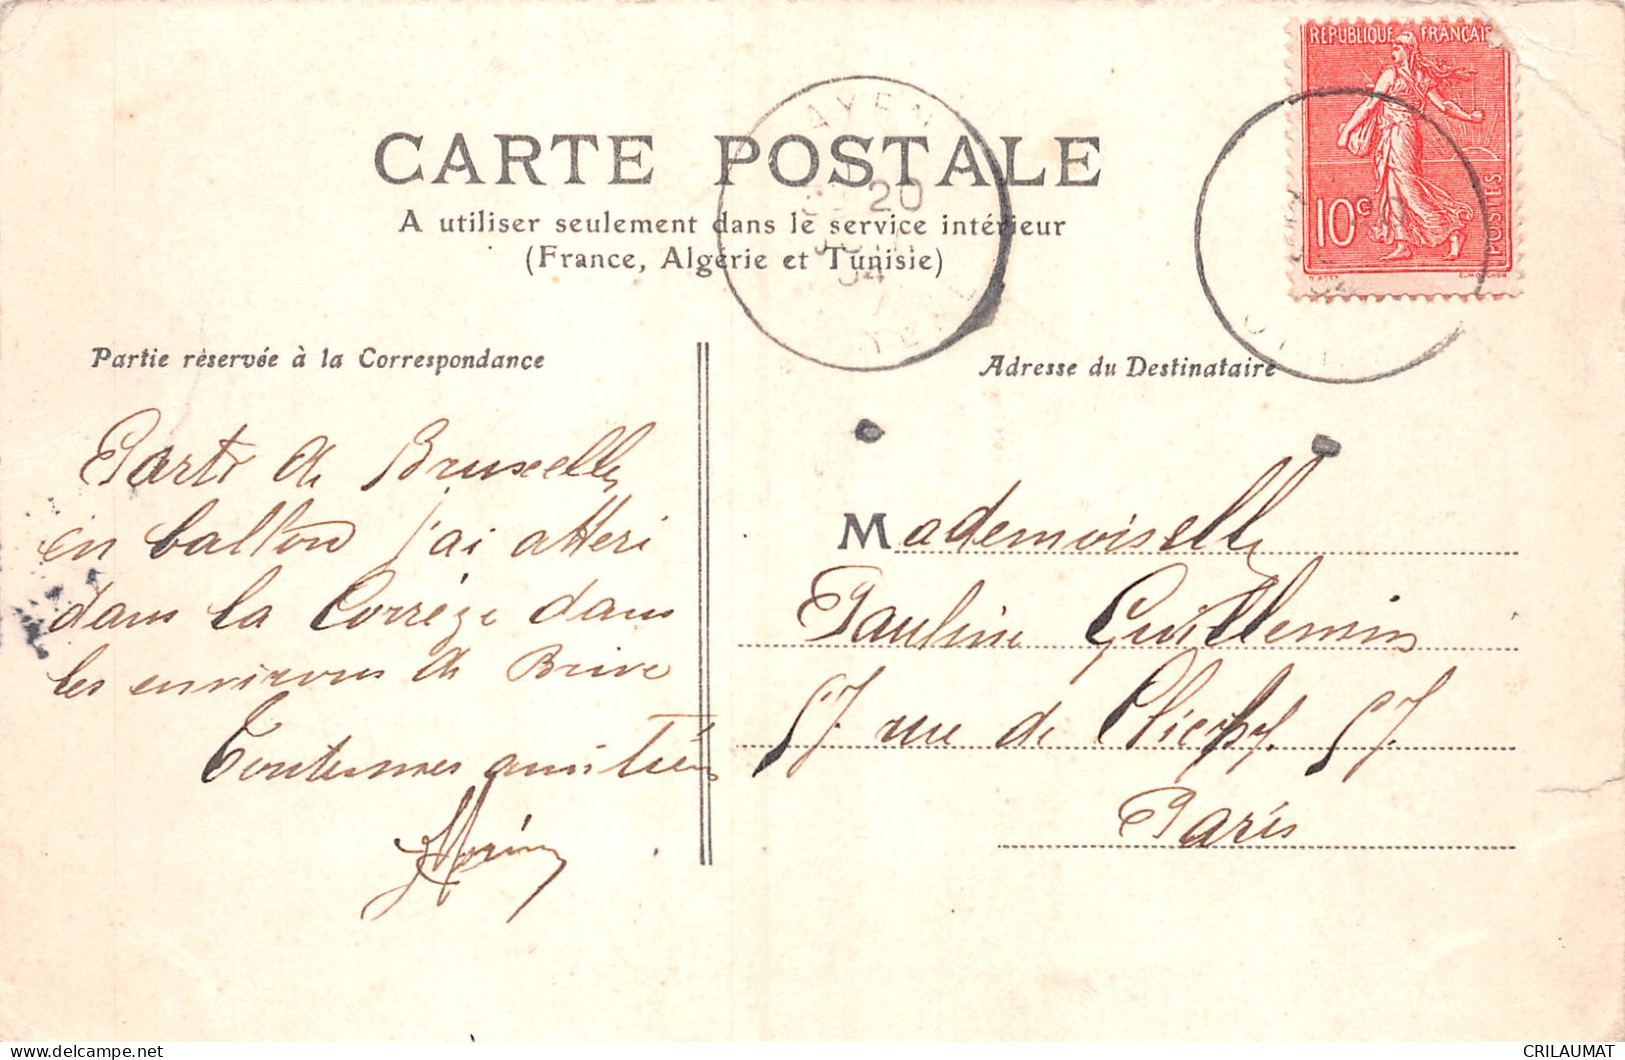 RÉPUBLIQUE FRANÇAISE
10c
POSTES
O. ROTY
E. MOUCHON
AYEN
20
04
CARTE POSTALE
A utiliser seulement dans le service intérieur
(France, Algérie et Tunisie)
Partie réservée à la Correspondance
Adresse du Destinataire
Parti de Bruxelles
en ballon j'ai atteri
dans la Corrèze dans
les environs de Brive
Toutes mes amitiés
Mademoiselle
Pauline Guillemin
57 rue de Clichy. 57.
Paris
CRILAUMAT